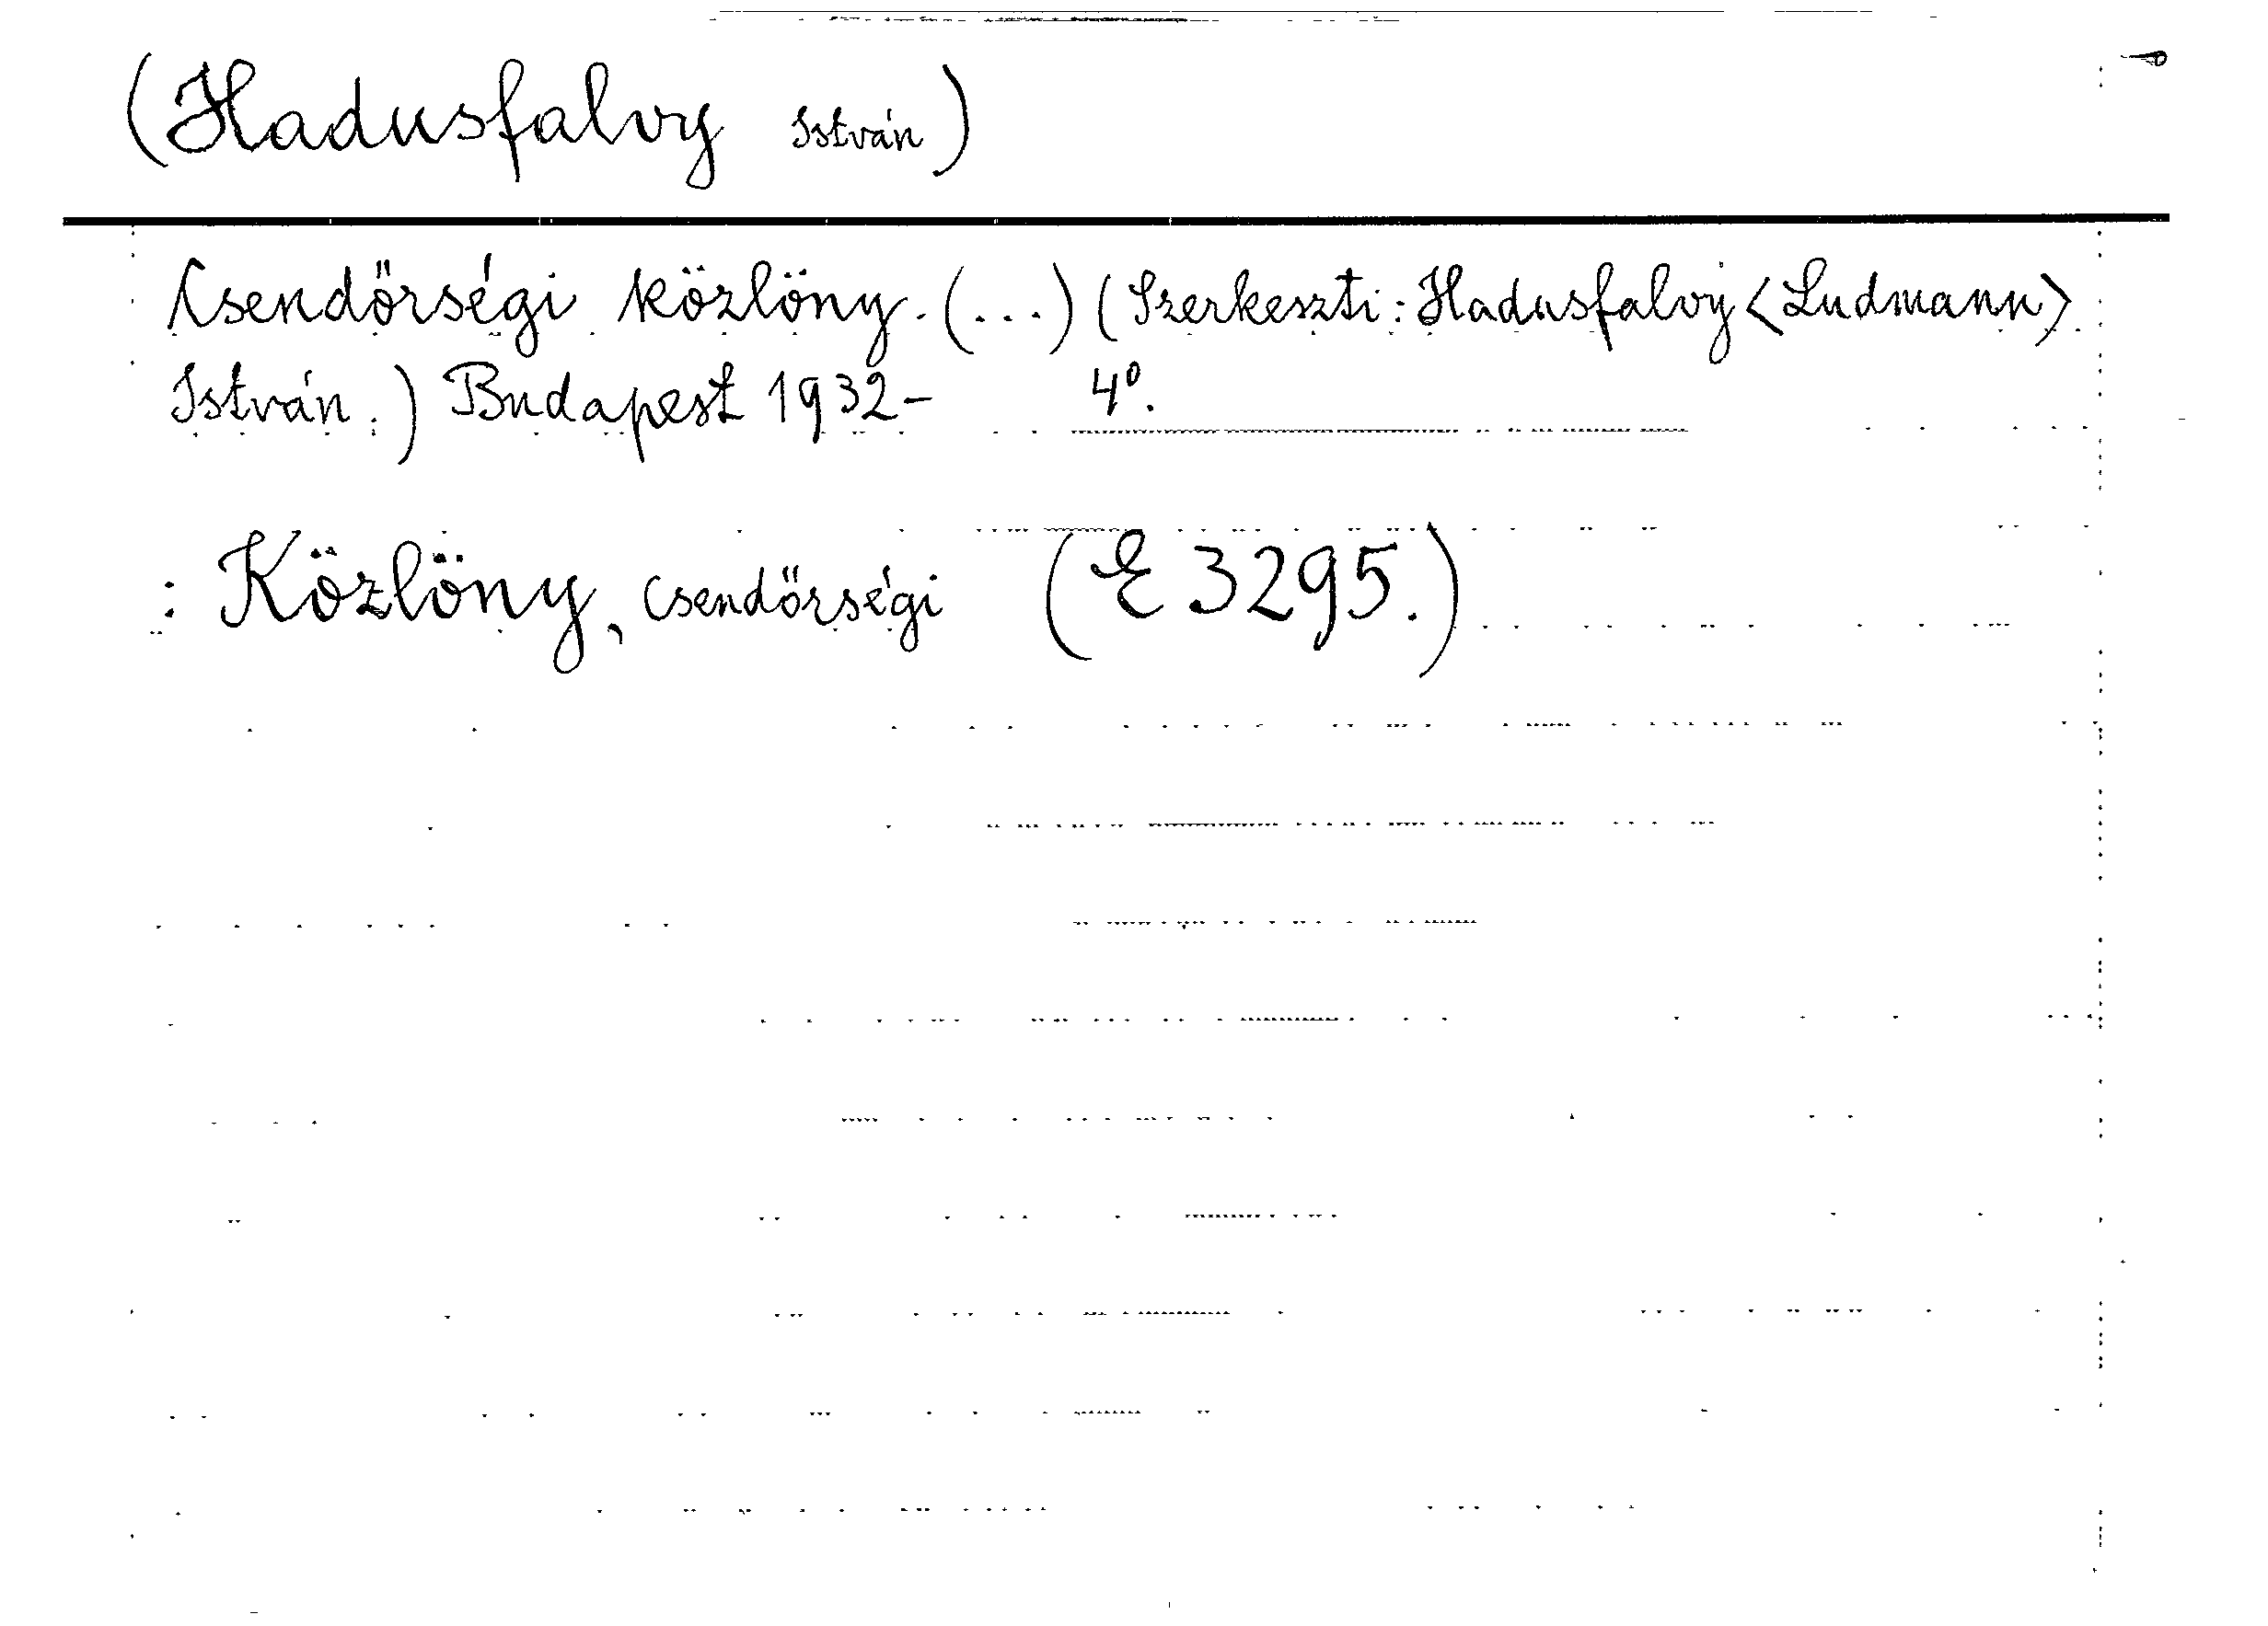 (Hadusfalvy István)
Csendőrségi közlöny. (...) (Szerkeszti: Hadusfalvy <Ludmann>
István.) Budapest 1932- 4⁰.
: Közlöny, csendőrségi (E 3295.)